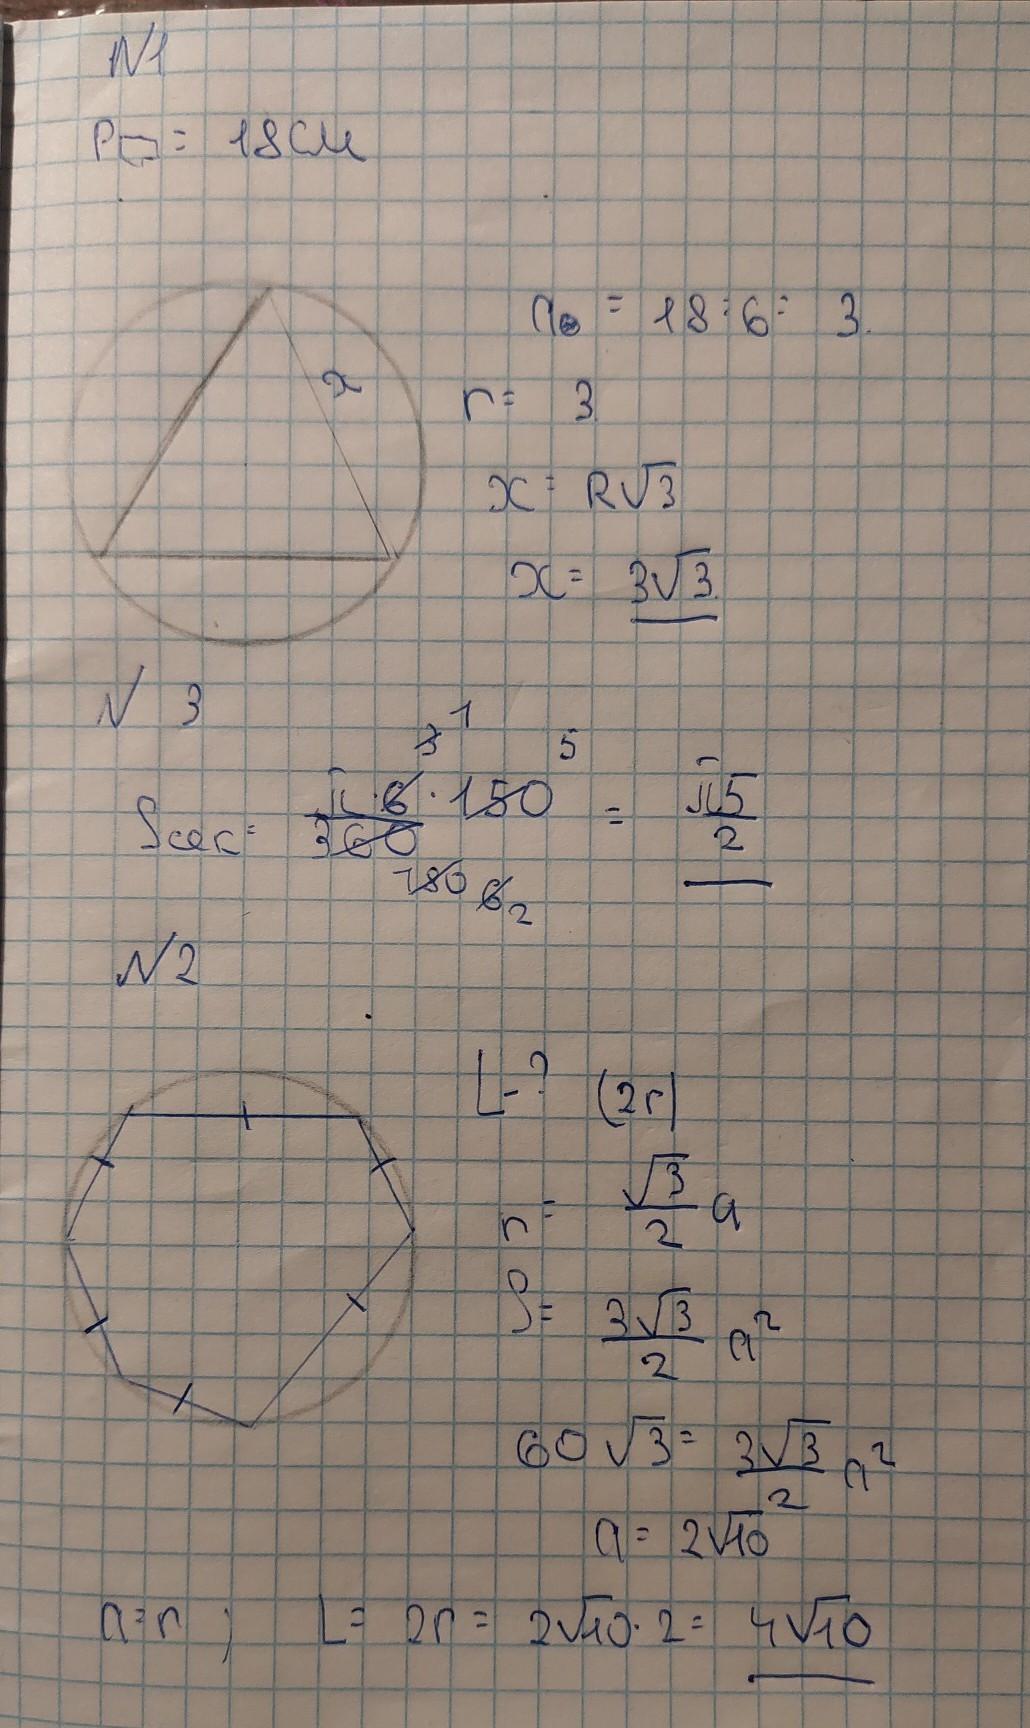 N1
P▭ = 18 см
a₆ = 18 : 6 = 3.
x
r = 3
x = R√3
x = 3√3
N 3
3 1 5
Sсек = π · 6 · 150 / 360 = π5/2
180 6 2
N2
L - ? (2r)
r = √3/2 a
S = 3√3/2 a²
60√3 = 3√3/2 a²
a = 2√10
a = r ; L = 2r = 2√10 · 2 = 4√10